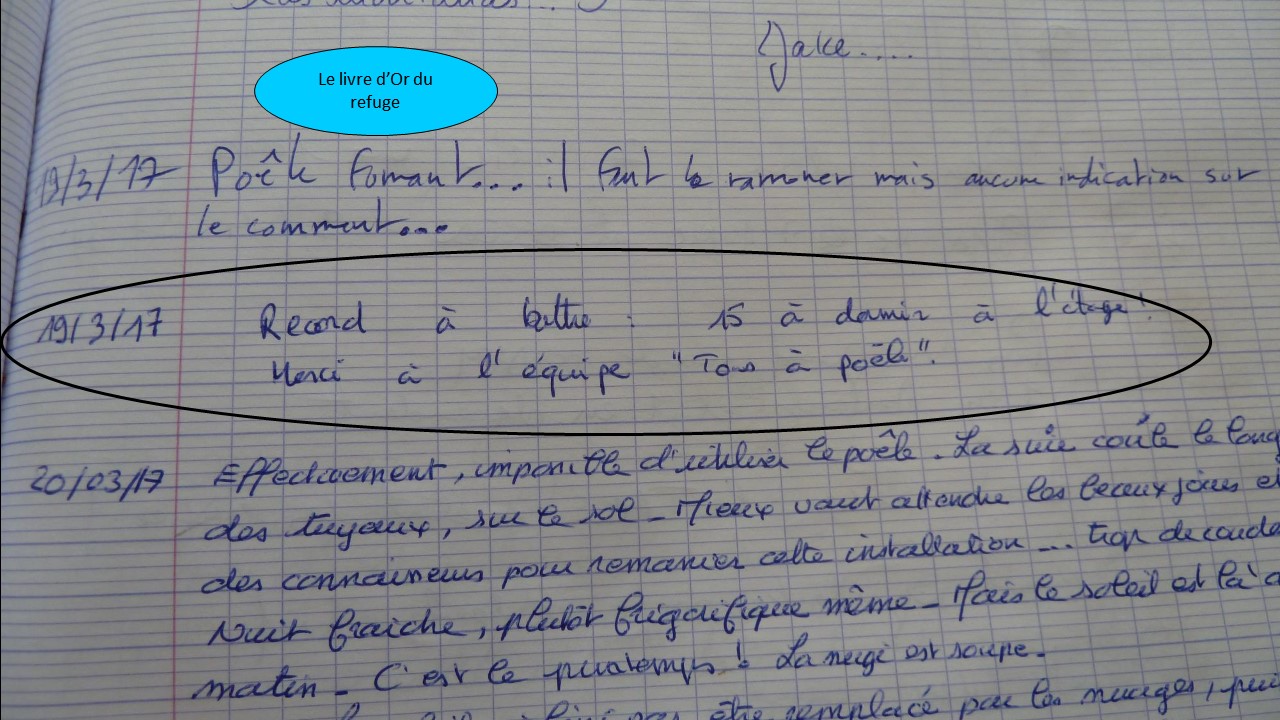 Jake.....
Le livre d'Or du
refuge
19/3/17 Poêle fumant... il faut le ramoner mais aucune indication sur
le comment...
19/3/17 Record à battre : 15 à dormir à l'étage !
Merci à l'équipe "Tous à poêle".
20/03/17 Effectivement, impossible d'utiliser le poêle. La suie coule le long
des tuyaux, sur le sol - Mieux vaut attendre les beaux jours et
des connaisseurs pour remanier cette installation ... trop de coudes
Nuit fraiche, plutôt frigorifique même - Mais le soleil est là
matin - C'est le printemps ! La neige est soupe -
être remplacé par les nuages, puis